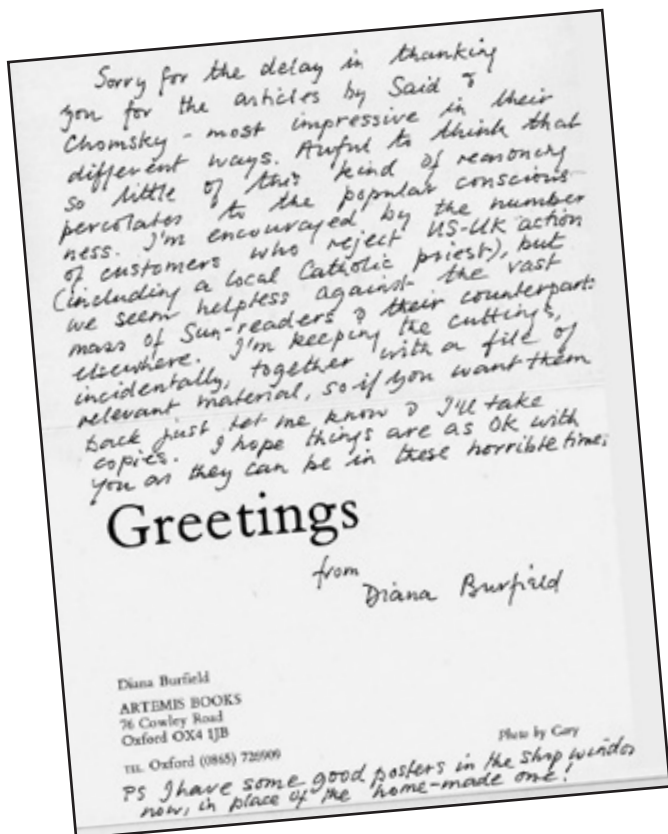 Sorry for the delay in thanking
you for the articles by Said &
Chomsky - most impressive in their
different ways. Awful to think that
so little of this kind of reasoning
percolates to the popular conscious-
ness. I'm encouraged by the number
of customers who reject US-UK action
(including a local Catholic priest), but
we seem helpless against the vast
mass of Sun-readers & their counterparts
elsewhere. I'm keeping the cuttings,
incidentally, together with a file of
relevant material, so if you want them
back just let me know & I'll take
copies. I hope things are as OK with
you as they can be in these horrible times
Greetings
from
Diana Burfield
Diana Burfield
ARTEMIS BOOKS
76 Cowley Road
Oxford OX4 1JB
TEL. Oxford (0865) 726909
Photo by Gary
PS I have some good posters in the shop window
now, in place of the home-made one!